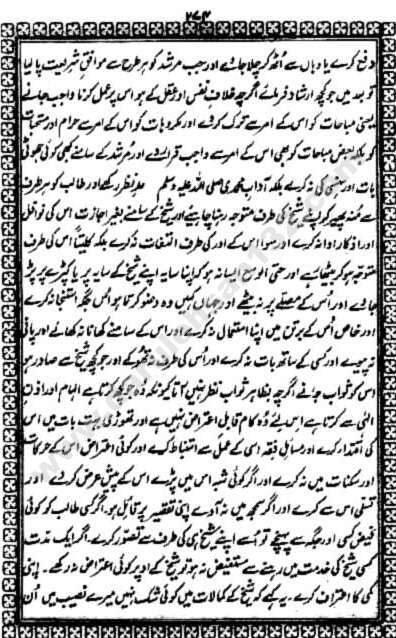 ۲۷۴
دفع کرے یا وہاں سے اُٹھ کر چلا جاوے اور جب مرشد کو ہر طرح سے موافق شریعت پا لیا
تو بعد میں جو کچھ ارشاد فرمائے اگرچہ خلاف نفس اور عقل کے ہو اس پر عمل کرنا واجب جانے
یعنی مباحات کو اس کے امر سے ترک کردے اور مکروہات کو اس کے امر سے حرام اور مستحبات
کو بلکہ بعض مباحات کو بھی اس کے امر سے واجب قرار دے اور مرشد کے سامنے کبھی کوئی جھوٹی
بات اور ہنسی کی نہ کرے بلکہ آداب محمدی صلی اللہ علیہ وسلم مدنظر رکھے اور طالب کو ہر طرف
سے منہ پھیر کر اپنے شیخ کی طرف متوجہ رہنا چاہیئے اور شیخ کے سامنے بغیر اجازت اس کی نوافل
اور اذکار ادا نہ کرے اور سوا اس کے اور کی طرف التفات نہ کرے بلکہ کلیتاً اس کی طرف
متوجہ ہو کر بیٹھا رہے اور حتی الوسع ایسا نہ ہو کہ اپنا سایہ اپنے شیخ کے سایہ پر یا کپڑے پر پڑ
جاوے اور اُس کے مصلے پر نہ بیٹھے اور جہاں کہیں وہ وضو کرتا ہو اُس جگہ استنجا نہ کرے
اور خاص اُس کے برتن میں اپنا استعمال نہ کرے اور اس کے سامنے کھانا نہ کھائے اور پانی
نہ پیوے اور کسی کے ساتھ بات نہ کرے اور اُس کی طرف نہ تھوکے اور جو کچھ شیخ سے صادر ہو
اس کو ثواب جانے اگرچہ بظاہر ثواب نظر نہیں آتا کیونکہ وُہ جو کچھ کرتا ہے الہام اور اذن
الٰہی سے کرتا ہے اس لئے وُہ کام قابل اعتراض نہیں ہے اور تھوڑی بہت بات میں اس
کی اقتدا کرے اور مسائل فقہ اسی کے عمل سے استنباط کرے اور کوئی اعتراض اُس کے حرکات
اور سکنات میں نہ کرے اور اگر کوئی شبہ اس میں پڑے اس کے پیش عرض کرے اور
تسلی اس سے کرے اور اگر سمجھ میں نہ آوے اپنی تقصیر پر قائل ہو، اگر کسی طالب کو کوئی
فیض کسی اور جگہ سے پہنچے تو اُسے اپنے شیخ ہی کی طرف سے تصور کرے۔ اگر ایک مدت
کسی شیخ کی خدمت میں رہنے سے مستفیض نہ ہو تو شیخ کے اوپر کوئی اعتراض نہ رکھے۔ اپنی
کمی کا اعتراف کرے۔ یہ کہے کہ شیخ کے کمالات میں کوئی شک نہیں میرے نصیب میں اُن